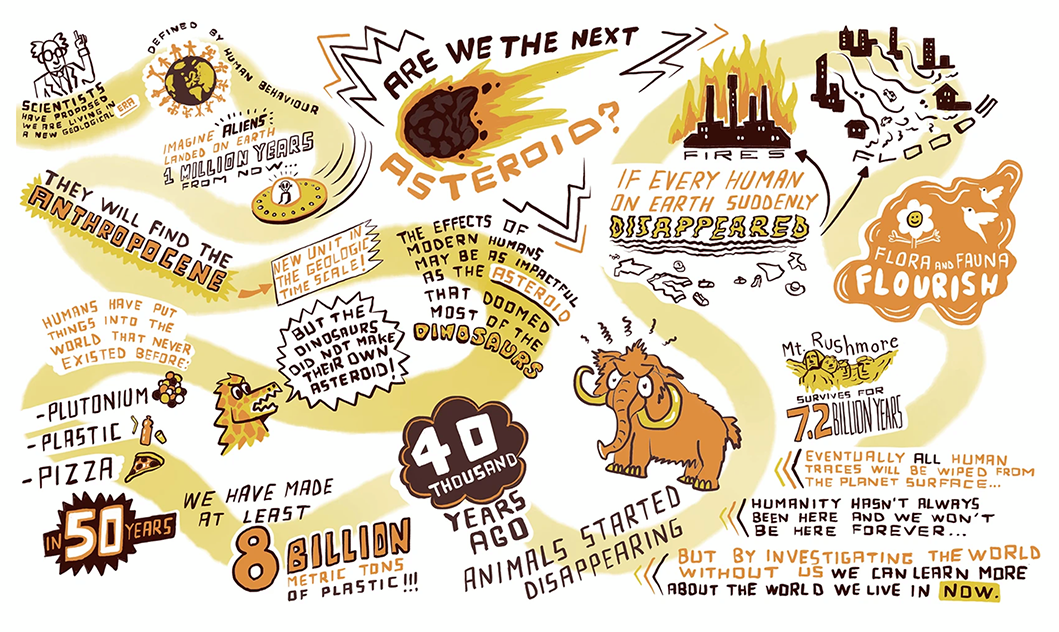 SCIENTISTS
HAVE PROPOSED
WE ARE LIVING IN
A NEW GEOLOGICAL ERA
DEFINED BY HUMAN BEHAVIOUR
IMAGINE ALIENS
LANDED ON EARTH
1 MILLION YEARS
FROM NOW...
ARE WE THE NEXT
ASTEROID?
THEY WILL FIND THE
ANTHROPOCENE
NEW UNIT IN
THE GEOLOGIC
TIME SCALE!
THE EFFECTS OF
MODERN HUMANS
MAY BE AS IMPACTFUL
AS THE ASTEROID
THAT DOOMED
MOST OF THE
DINOSAURS
BUT THE
DINOSAURS
DID NOT MAKE
THEIR OWN
ASTEROID!
HUMANS HAVE PUT
THINGS INTO THE
WORLD THAT NEVER
EXISTED BEFORE:
-PLUTONIUM
-PLASTIC
-PIZZA
IN 50 YEARS
WE HAVE MADE
AT LEAST
8 BILLION
METRIC TONS
OF PLASTIC!!!
40
THOUSAND
YEARS
AGO
ANIMALS STARTED
DISAPPEARING
IF EVERY HUMAN
ON EARTH SUDDENLY
DISAPPEARED
FIRES
FLOODS
FLORA AND FAUNA
FLOURISH
Mt. Rushmore
SURVIVES FOR
7.2 BILLION YEARS
EVENTUALLY ALL HUMAN
TRACES WILL BE WIPED FROM
THE PLANET SURFACE...
HUMANITY HASN'T ALWAYS
BEEN HERE AND WE WON'T
BE HERE FOREVER...
BUT BY INVESTIGATING THE WORLD
WITHOUT US WE CAN LEARN MORE
ABOUT THE WORLD WE LIVE IN NOW.